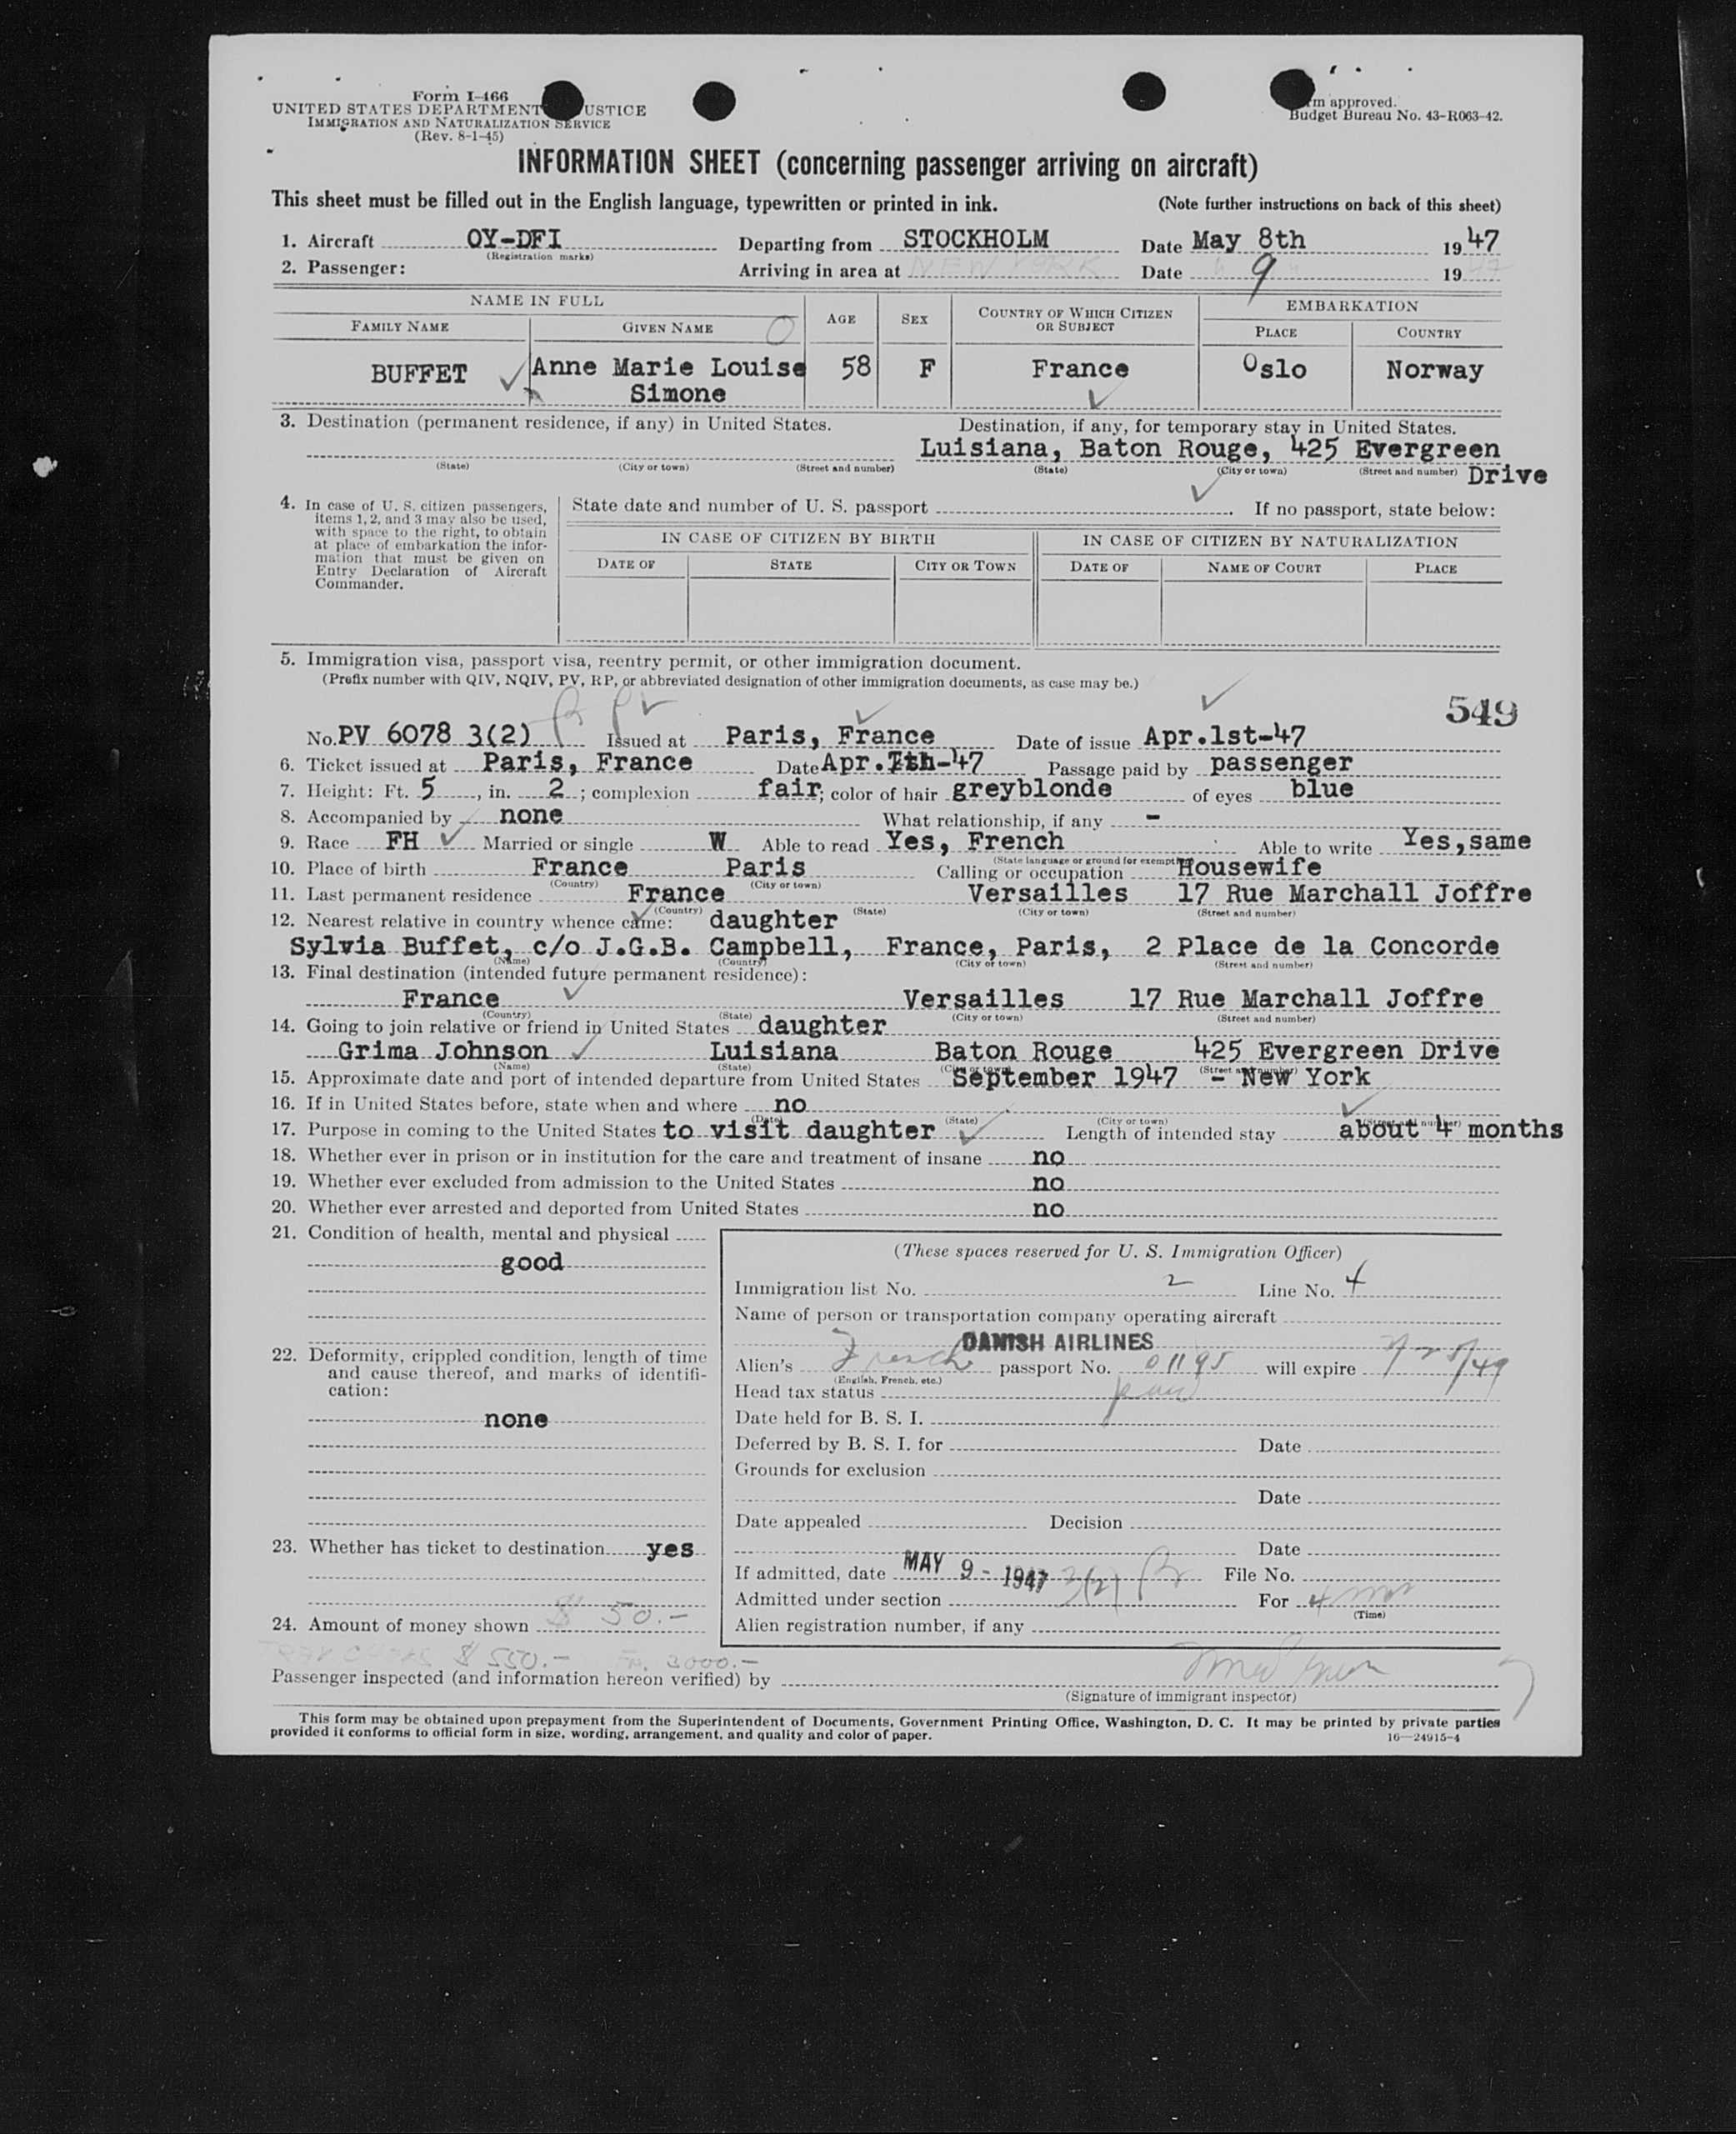 Form I-466
UNITED STATES DEPARTMENT USTICE
IMMIGRATION AND NATURALIZATION SERVICE
(Rev. 8-1-45)
rm approved.
Budget Bureau No. 43-R063-42.
INFORMATION SHEET (concerning passenger arriving on aircraft)
This sheet must be filled out in the English language, typewritten or printed in ink. (Note further instructions on back of this sheet)
1. Aircraft OY-DFI Departing from STOCKHOLM Date May 8th 1947
(Registration marks)
2. Passenger: Arriving in area at NEW YORK Date 9 1947
NAME IN FULL AGE SEX COUNTRY OF WHICH CITIZEN OR SUBJECT EMBARKATION
FAMILY NAME GIVEN NAME PLACE COUNTRY
BUFFET Anne Marie Louise 58 F France Oslo Norway
Simone
3. Destination (permanent residence, if any) in United States. Destination, if any, for temporary stay in United States.
Luisiana, Baton Rouge, 425 Evergreen
(State) (City or town) (Street and number) (State) (City or town) (Street and number) Drive
4. In case of U. S. citizen passengers, items 1, 2, and 3 may also be used, with space to the right, to obtain at place of embarkation the information that must be given on Entry Declaration of Aircraft Commander.
State date and number of U. S. passport If no passport, state below:
IN CASE OF CITIZEN BY BIRTH IN CASE OF CITIZEN BY NATURALIZATION
DATE OF STATE CITY OR TOWN DATE OF NAME OF COURT PLACE
5. Immigration visa, passport visa, reentry permit, or other immigration document.
(Prefix number with QIV, NQIV, PV, RP, or abbreviated designation of other immigration documents, as case may be.)
549
No. PV 6078 3(2) Issued at Paris, France Date of issue Apr.1st-47
6. Ticket issued at Paris, France Date Apr.7th-47 Passage paid by passenger
7. Height: Ft. 5, in. 2; complexion fair; color of hair greyblonde of eyes blue
8. Accompanied by none What relationship, if any -
9. Race FH Married or single W Able to read Yes, French Able to write Yes,same
(State language or ground for exempt
10. Place of birth France Paris Calling or occupation Housewife
(Country) (City or town)
11. Last permanent residence France Versailles 17 Rue Marchall Joffre
(Country) (State) (City or town) (Street and number)
12. Nearest relative in country whence came: daughter
Sylvia Buffet, c/o J.G.B. Campbell, France, Paris, 2 Place de la Concorde
(Name) (Country) (City or town) (Street and number)
13. Final destination (intended future permanent residence):
France Versailles 17 Rue Marchall Joffre
(Country) (State) (City or town) (Street and number)
14. Going to join relative or friend in United States daughter
Grima Johnson Luisiana Baton Rouge 425 Evergreen Drive
(Name) (State) (City or town) (Street and number)
15. Approximate date and port of intended departure from United States September 1947 - New York
16. If in United States before, state when and where no
(Date) (State) (City or town) (Street and number)
17. Purpose in coming to the United States to visit daughter Length of intended stay about 4 months
18. Whether ever in prison or in institution for the care and treatment of insane no
19. Whether ever excluded from admission to the United States no
20. Whether ever arrested and deported from United States no
21. Condition of health, mental and physical
good
22. Deformity, crippled condition, length of time and cause thereof, and marks of identification:
none
23. Whether has ticket to destination yes
24. Amount of money shown $ 50.-
$ 550.- 3000.-
(These spaces reserved for U. S. Immigration Officer)
Immigration list No. 2 Line No. 4
Name of person or transportation company operating aircraft
DANISH AIRLINES
Alien's French passport No. 01195 will expire
(English, French, etc.)
Head tax status
Date held for B. S. I.
Deferred by B. S. I. for Date
Grounds for exclusion
Date
Date appealed Decision
Date
If admitted, date MAY 9 - 1947 File No.
Admitted under section 3(2) For 4 mos
(Time)
Alien registration number, if any
Passenger inspected (and information hereon verified) by
(Signature of immigrant inspector)
This form may be obtained upon prepayment from the Superintendent of Documents, Government Printing Office, Washington, D. C. It may be printed by private parties
provided it conforms to official form in size, wording, arrangement, and quality and color of paper.
16—24915-4